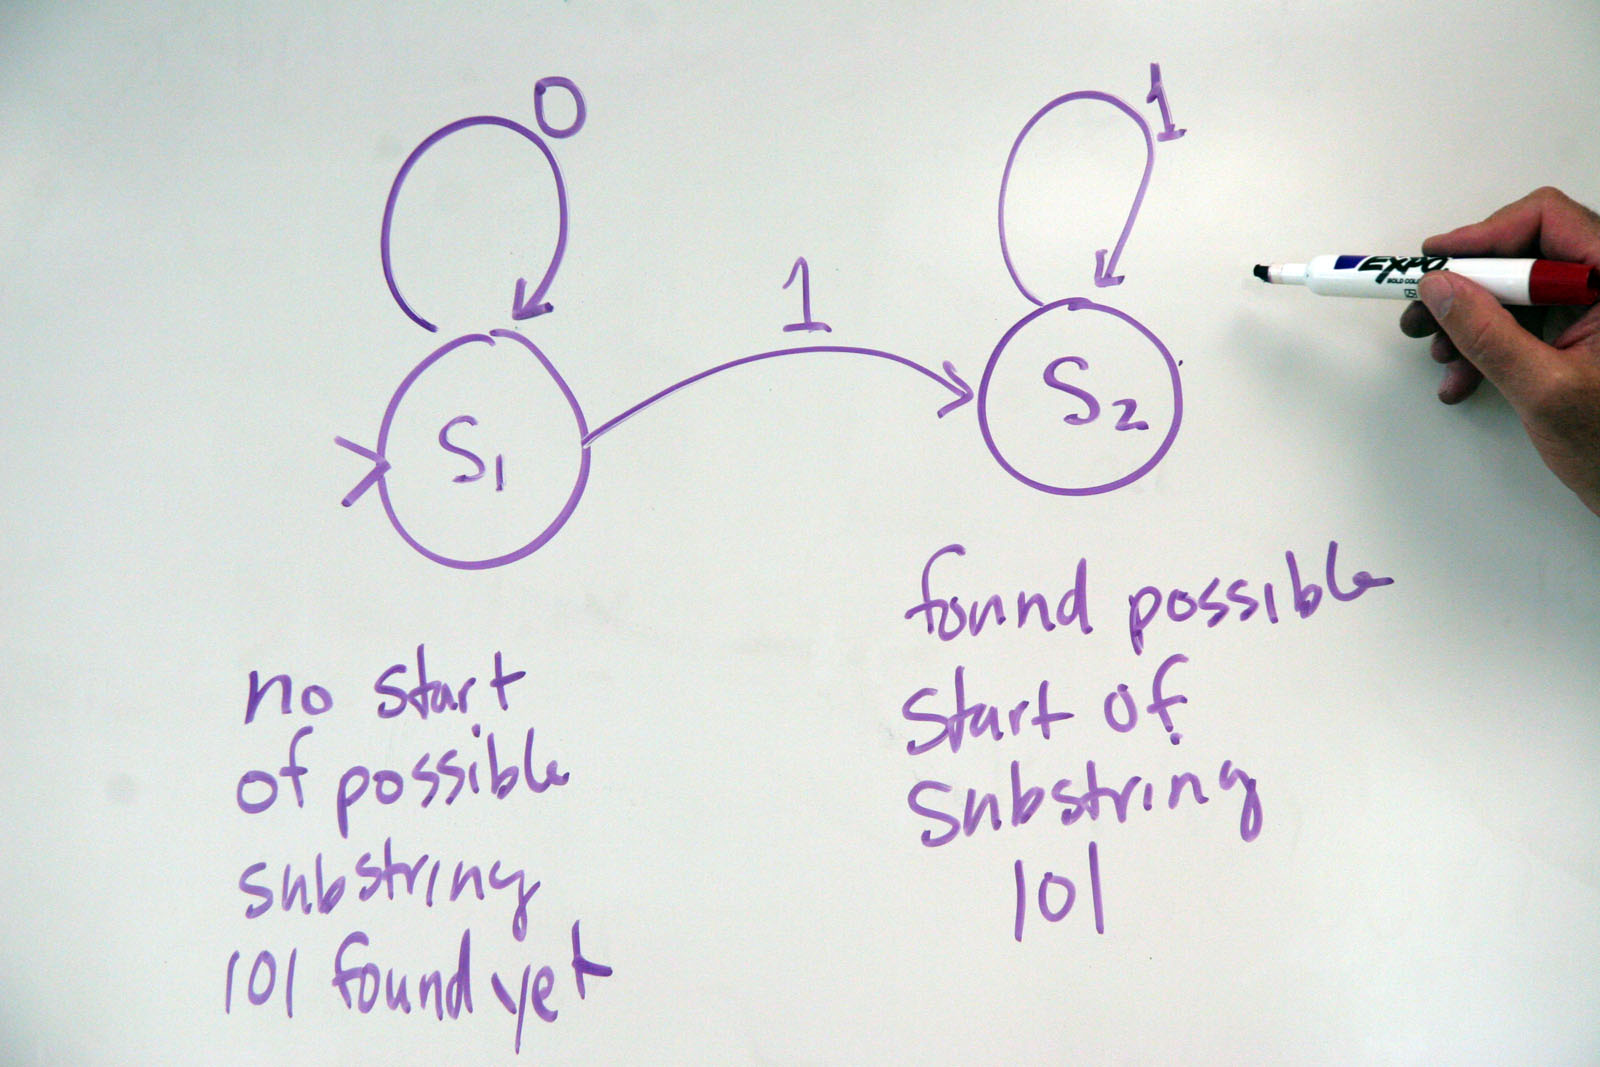 0
1
1
S1
S2
EXPO
no start
of possible
substring
101 found yet
found possible
start of
substring
101